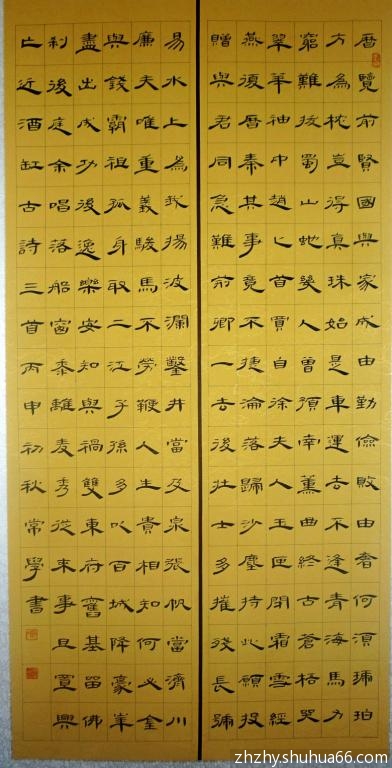 曆覽前賢國與家成由勤儉敗由奢何須琥珀
方為枕豈得真珠始是車運去不逢青海馬力
窮難拔蜀山蛇幾人曾預南薰曲終古蒼梧哭
翠華袖中趙匕首買自徐夫人玉匣閉霜雪經
燕復曆秦其事竟不捷淪落歸沙塵持此願投
贈與君同急難荊卿一去後壯士多摧殘長號
易水上為我揚波瀾鑿井當及泉張帆當濟川
廉夫唯重義駿馬不勞鞭人生貴相知何必金
與錢霸祖孤身取二江子孫多以百城降豪華
盡出成功後逸樂安知與禍雙東府舊基留佛
剎後庭余唱落船窗黍離麥秀從來事且置興
亡近酒缸古詩三首丙申初秋常學書
zhzhy.shuhua66.com